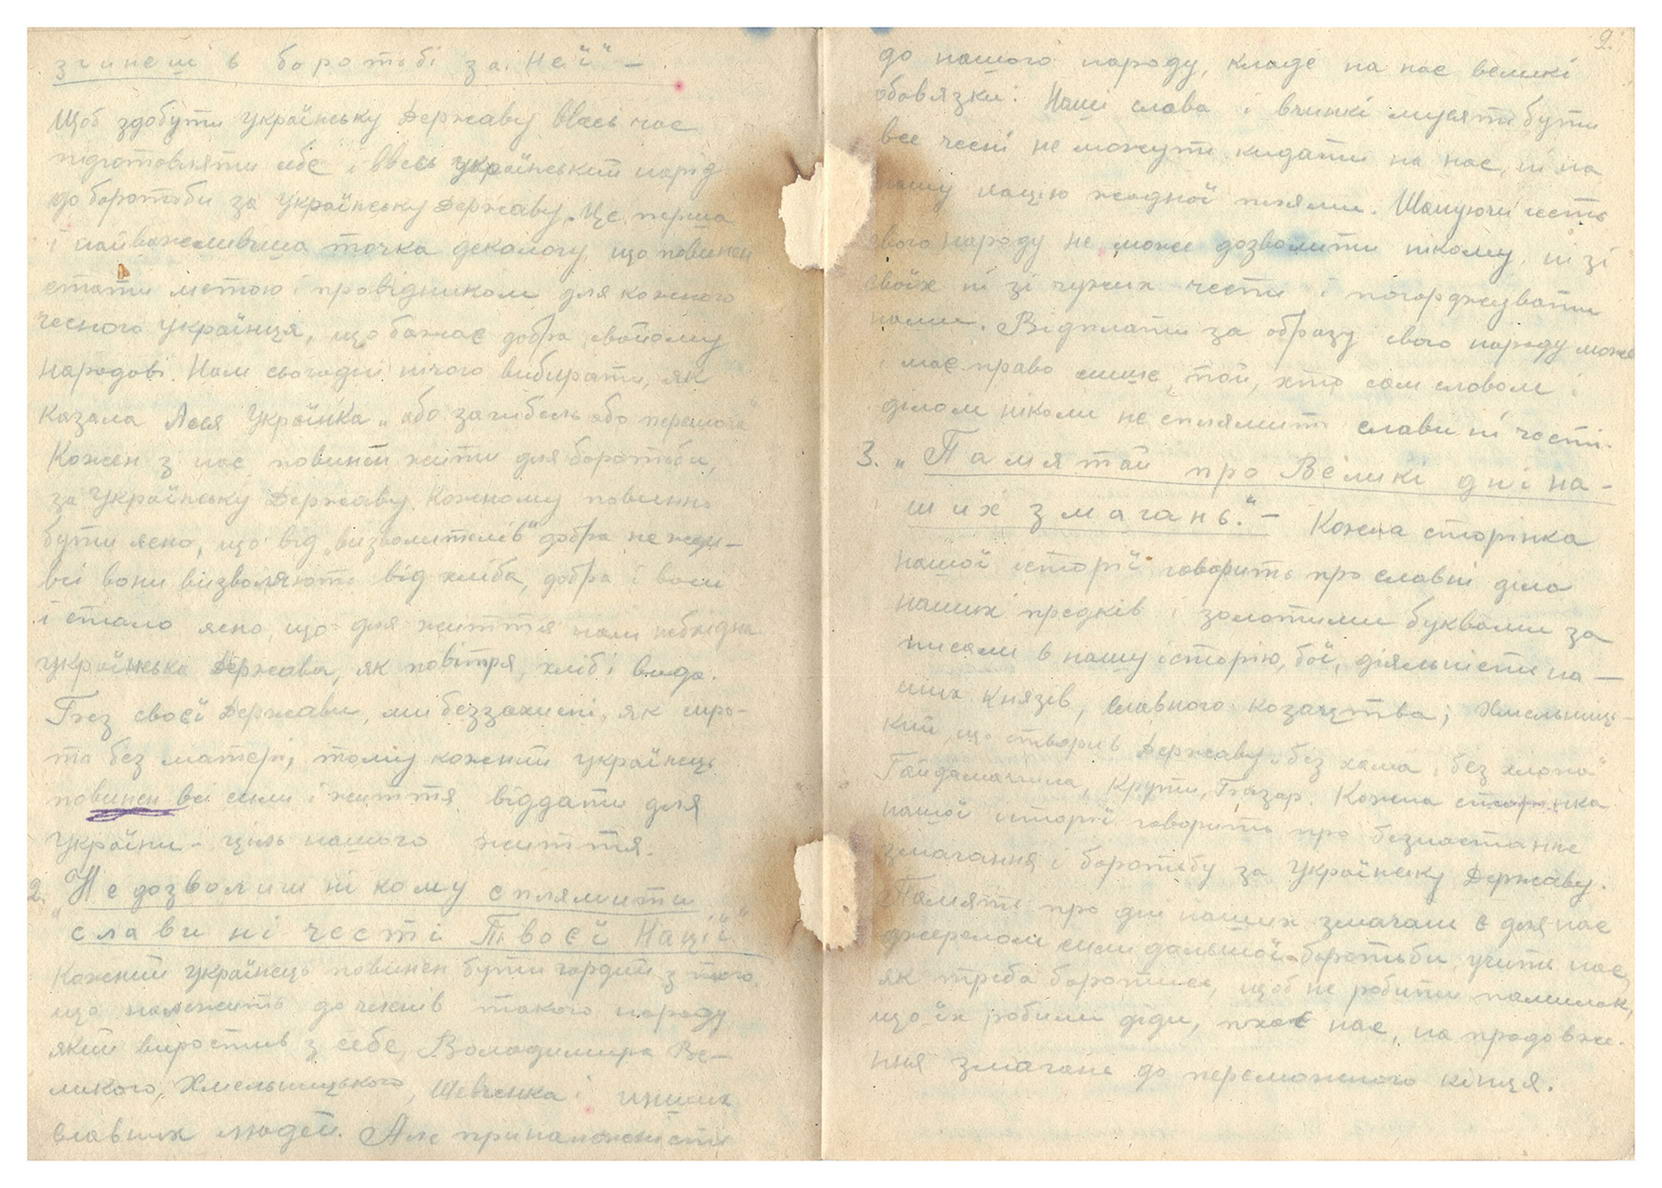 згинеш в боротьбі за Неї" –
Щоб здобути Українську Державу ввесь час
підготовляти себе і ввесь український нарід
до боротьби за Українську Державу. Це перша
і найважливіша точка декалогу, що повинен
стати метою і провідником для кожного
чесного українця, що бажає добра свойому
народові. Нам сьогодні нічого вибирати, як
казала Леся Українка „або загибель або перемога"
Кожен з нас повинен жити для боротьби,
за Українську Державу. Кожному повинно
бути ясно, що від „визволителів" добра не жди –
всі вони визволяють від хліба, добра і волі
і стало ясно, що для життя нам необхідна
українська Держава, як повітря, хліб і вода.
Без своєї Держави, ми беззахисні, як сиро-
та без матері, тому кожний українець
повинен всі сили і життя віддати для
України – ціль нашого життя.
2. „Не дозволиш нікому сплямити
слави ні чести Твоєї Нації"
Кожний українець повинен бути гордий з того,
що належить до членів такого народу
який виростив з себе, Володимира Ве-
ликого, Хмельницького, Шевченка і инших
славних людей. Але приналежність
2.
до нашого народу, кладе на нас великі
обовязки: Наші слова і вчинкі мусять бути
все чесні не можуть кидати на нас, ні на
нашу націю жодної плями. Шануючи честь
свого народу не може дозволити нікому ні зі
своїх ні зі чужих чести і погорджувати
нами. Відплати за образу свого народу може
має право лише, той, хто сам словом і
ділом ніколи не сплямить слави ні чести.
3. „Памятай про Великі дні на-
ших змагань." – Кожна сторінка
нашої історії говорить про славні діла
наших предків і золотими буквами за
писали в нашу історію, бої, діяльність на –
ших Князів, славного козацтва; Хмельниць-
кий що створив Державу „без хама і без хлопа"
Гайдамаччина, Крути, Базар. Кожна сторінка
нашої історії говорить про безнастанне
змагання і боротьбу за Українську Державу.
Память про дні наших змагань є для нас
джерелом сили дальшої боротьби учить нас,
як треба боротись, щоб не робити помилок,
що їх робили діди, пхає нас, на продовже-
ння змагань до переможного кінця.